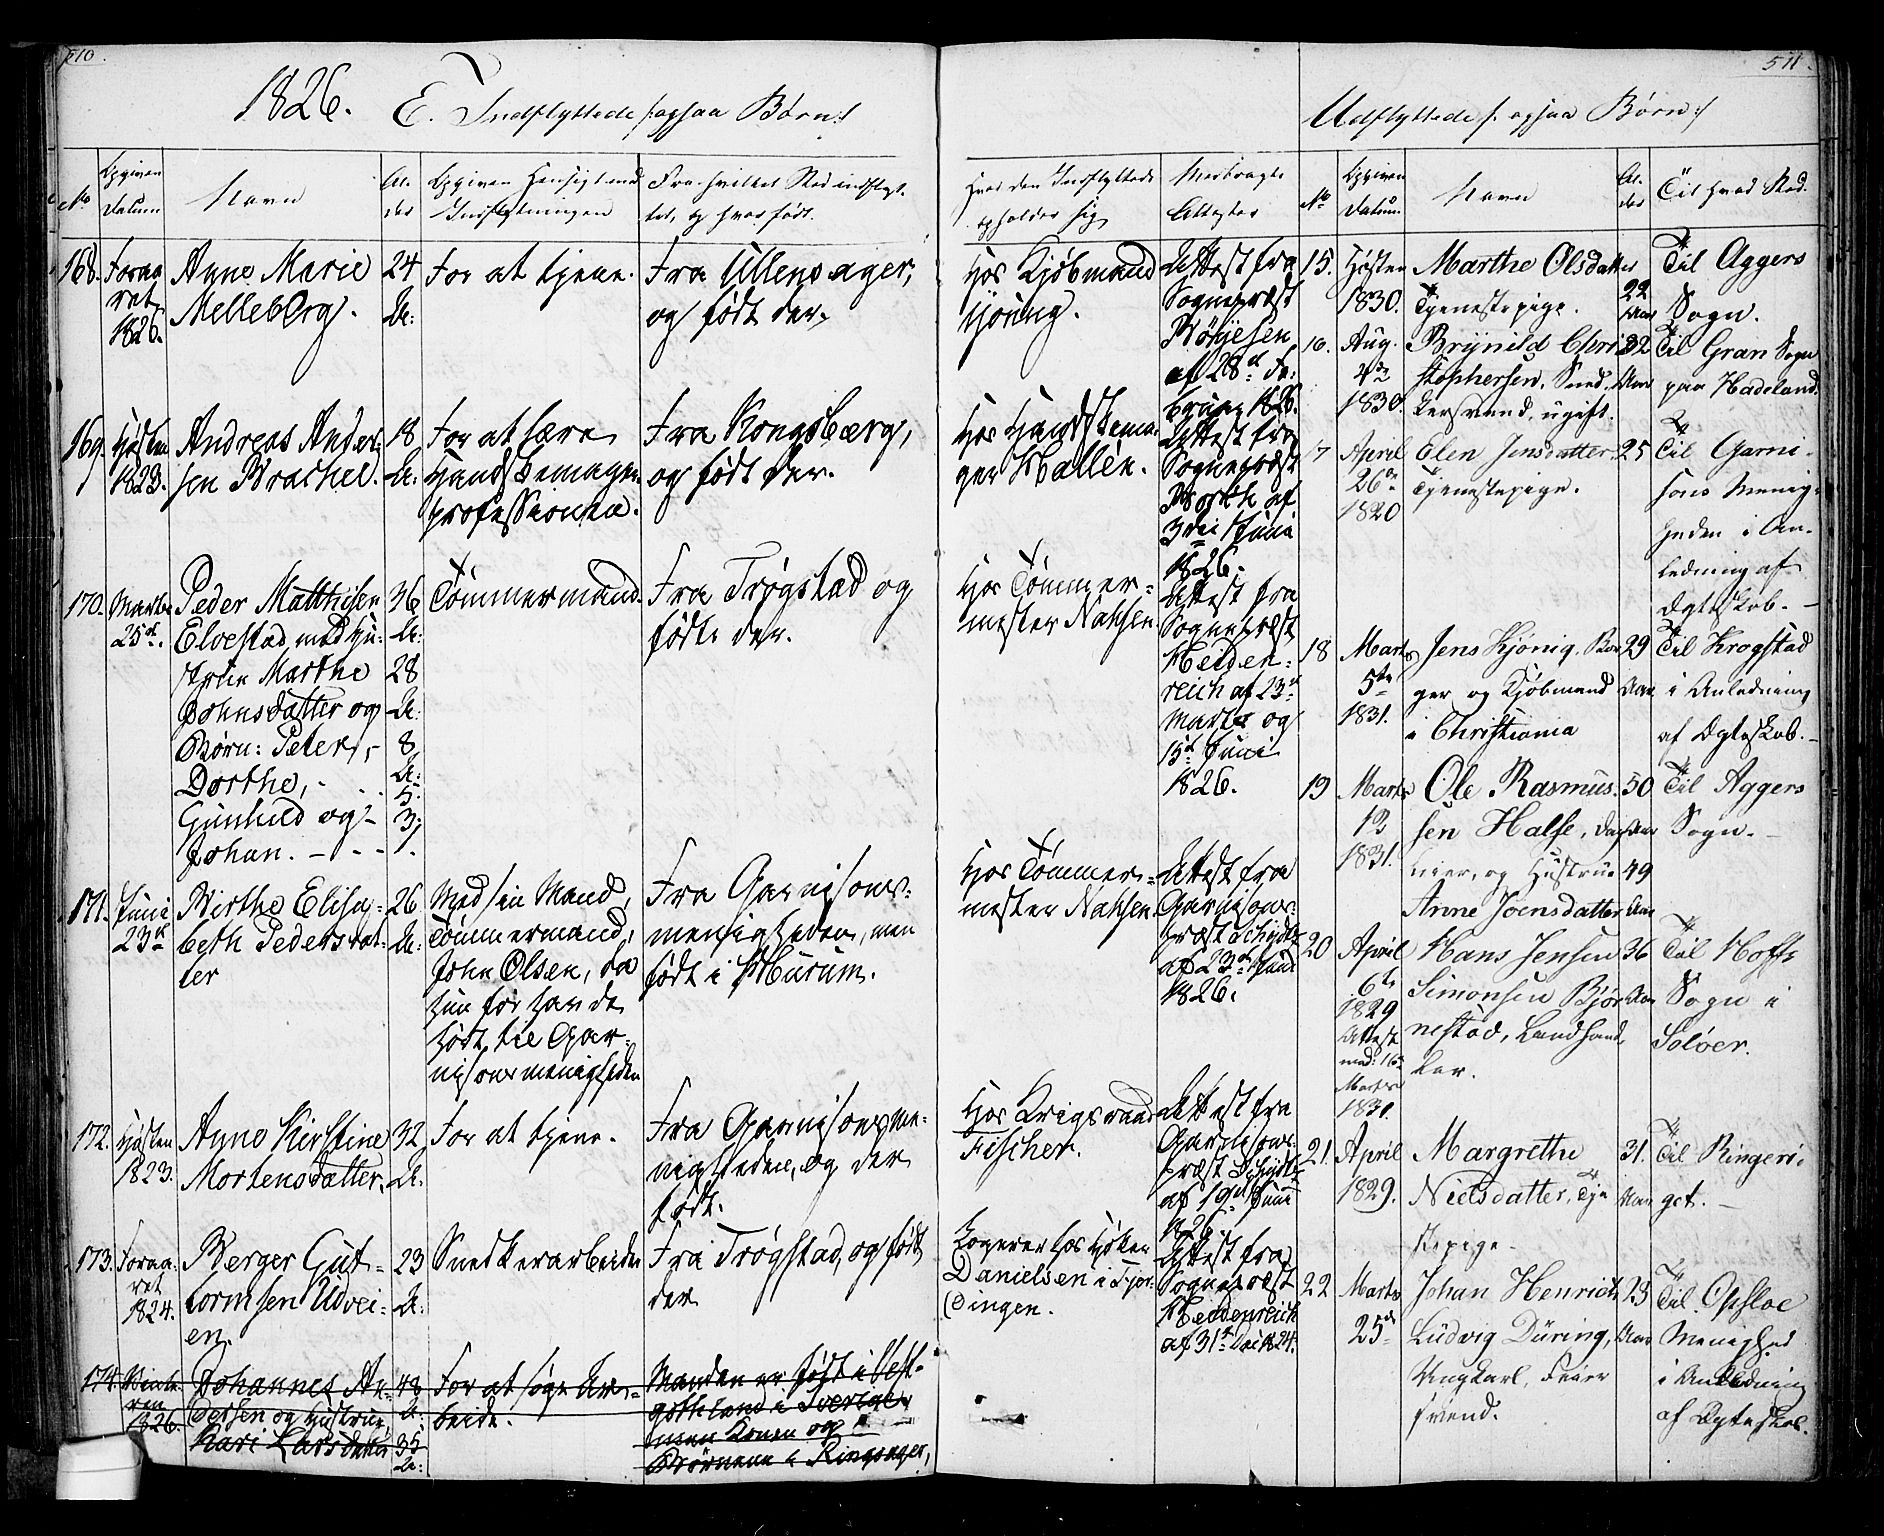 510.
1826. E. Indflyttede /: ogsaa Børn :/
No
Opgiven Datum
Navn
Alder
Opgiven Hensigt med Indflytningen
Fra hvilket Sted indflyttet, og hvor født.
Hvor den Indflyttede opholder sig
Medbragte Attester
168.
Foraaret
1826.
Anne Marie
Melleberg.
24
A:
For at tjene.
Fra Ullensager,
og født der.
Hos Kjøbmand
Attest fra
Sognepræst
af 28de Fe:
bruar 1826.
169.
Høsten
1823.
Andreas Ander
sen Brachel.
18
A:
For at lære
Handskemager
professionen.
Fra Kongsberg,
og født der.
Hos Handskema:
ger Hallén.
Attest fra
Sognepræst
af
3die Juni
1826.
170.
Marts
25de.
Peder Matthisen
Elvestad med Hu:
strue Marthe
Johnsdatter og
Børn: Peter, -
Dorthe, -
Gunhild og -
Johan. - - -
36
A:
28
A:
8
A:
5.
3,
1.
Tømmermand.
Fra Trøgstad og
født der.
Hos Tømmer=
mester Nahsen.
Attest fra
Sognepræst
Heiden=
reich af 23de
Marts og
15de Juni
1826.
171.
Juni
23de
Birthe Elisa=
beth Pedersdat=
ter
26
A:
Med sin Mand,
Tømmermand,
John Olsen, da
hun før havde
hørt til Gar=
nisonsmenigheden
Fra Garnisons=
menigheden, men
født i Hurum.
Hos Tømmer=
mester Nahsen.
Attest fra
Garnisons=
præst Schydtz
af 23de Juni
1826.
172.
Høsten
1823.
Anne Kirstine
Mortensdatter.
32
A:
For at tjene.
Fra Garnisonsme=
nigheden, og der
født.
Hos Krigsraad
Fischer.
Attest fra
Garnisons=
præst Schydtz
af 19de Juni
1826.
173.
Foraa
ret
1824.
Berger Gut=
tormsen Udvei=
en.
23
A:
Snedkerarbeide
Fra Trøgstad, og født
der
Logerer hos Høker
Danielsen i Fjer=
dingen.
Attest fra
Sognepræst
Heidenreich
af 31te Dec 1824.
174.
Vinte
ren
1826.
Johannes An=
dersen og Hustrue
Kari Larsdatter
48
A:
35
A:
For at søge Ar=
beide.
Manden er født i Vest=
gothland i Sverige
men Konen og
Børnene i Ringsager,
511.
Udflyttede /: ogsaa Børn :/
No
Opgiven Datum.
Navn
Alder
Til hvad Sted.
15.
Høsten
1830.
Marthe Olsdatter
Tjenestepige.
22
Aar
Til Aggers
Sogn.
16.
Aug.
1830.
Brynild Chri
stophersen, Sned.
kersvend, ugift.
32
Aar
Til Gran Sogn
paa Hadeland.
17
April
26de
1820
Elen Jensdatter,
Tjenestepige.
25
Til Garni-
sons Menig-
heden i An-
ledning af
Ægteskab. -
18
Marts
5te
1831.
Jens Kjønig, Bor
ger og Kjøbmand
i Christiania
29
Aar
Til Krogstad
i Anledning
af Ægteskab. -
19
Marts
12
1831.
Ole Rasmus.
sen Halse,
og Hustrue
Anne Joensdatter
50
Aar
49
Aar
Til Aggers
Sogn. -
20
April
6te
1829
Attest
med: 16de
Marts
1831.
Hans Jensen
Simonsen Bjør
nestad, Landhand,
ler.
36
Aar
Til Hoffs
Sogn i
Soløer.
21.
April
1829.
Margrethe
Nielsdatter, Tje
stepige.
31.
Aar
Til Ringeri:
get. -
22
Marts
25de
Johan Henrich
Ludvig Düring,
Ungkarl, Feier
svend.
23
Aar
Til Opsloe
Menighed
i Anledning
af Ægteskab.